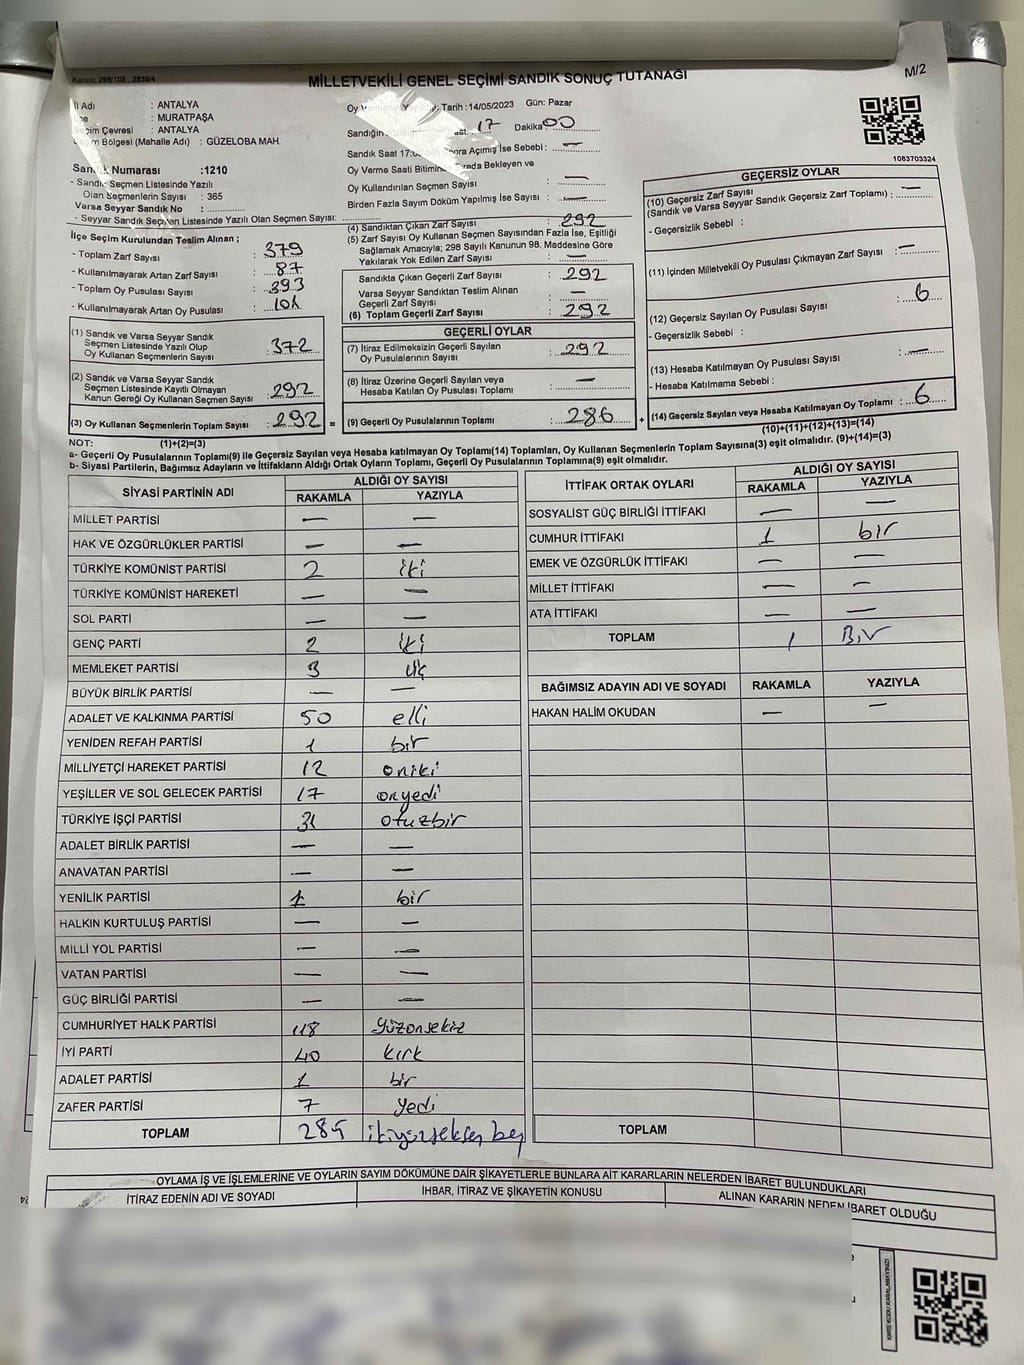 Kanun: 298/105 , 2839/4
MİLLETVEKİLİ GENEL SEÇİMİ SANDIK SONUÇ TUTANAĞI
M/2
İl Adı : ANTALYA
: MURATPAŞA
Seçim Çevresi : ANTALYA
Bölgesi (Mahalle Adı) : GÜZELOBA MAH.
Sandık Numarası :1210
- Sandık Seçmen Listesinde Yazılı
Olan Seçmenlerin Sayısı : 365
Varsa Seyyar Sandık No :
- Seyyar Sandık Seçmen Listesinde Yazılı Olan Seçmen Sayısı:
İlçe Seçim Kurulundan Teslim Alınan ;
- Toplam Zarf Sayısı : 379
- Kullanılmayarak Artan Zarf Sayısı : 87
- Toplam Oy Pusulası Sayısı : 393
- Kullanılmayarak Artan Oy Pusulası : 101
(1) Sandık ve Varsa Seyyar Sandık
Seçmen Listesinde Yazılı Olup
Oy Kullanan Seçmenlerin Sayısı : 372
(2) Sandık ve Varsa Seyyar Sandık
Seçmen Listesinde Kayıtlı Olmayan
Kanun Gereği Oy Kullanan Seçmen Sayısı : 292
(3) Oy Kullanan Seçmenlerin Toplam Sayısı : 292 =
Oy Tarih :14/05/2023 Gün: Pazar
Sandığın 17 Dakika 00
Sandık Saat 17:00 Sonra Açımış İse Sebebi : —
Oy Verme Saati Bitiminde Sırada Bekleyen ve
Oy Kullandırılan Seçmen Sayısı : —
Birden Fazla Sayım Döküm Yapılmış İse Sayısı : —
(4) Sandıktan Çıkan Zarf Sayısı : 292
(5) Zarf Sayısı Oy Kullanan Seçmen Sayısından Fazla İse, Eşitliği
Sağlamak Amacıyla; 298 Sayılı Kanunun 98. Maddesine Göre
Yakılarak Yok Edilen Zarf Sayısı : —
Sandıkta Çıkan Geçerli Zarf Sayısı : 292
Varsa Seyyar Sandıktan Teslim Alınan
Geçerli Zarf Sayısı : —
(6) Toplam Geçerli Zarf Sayısı : 292
GEÇERLİ OYLAR
(7) İtiraz Edilmeksizin Geçerli Sayılan
Oy Pusulalarının Sayısı : 292
(8) İtiraz Üzerine Geçerli Sayılan veya
Hesaba Katılan Oy Pusulası Toplamı : —
(9) Geçerli Oy Pusulalarının Toplamı : 286 +
1083703324
GEÇERSİZ OYLAR
(10) Geçersiz Zarf Sayısı
(Sandık ve Varsa Seyyar Sandık Geçersiz Zarf Toplamı) : —
- Geçersizlik Sebebi :
(11) İçinden Milletvekili Oy Pusulası Çıkmayan Zarf Sayısı : —
(12) Geçersiz Sayılan Oy Pusulası Sayısı : 6
- Geçersizlik Sebebi :
(13) Hesaba Katılmayan Oy Pusulası Sayısı : —
- Hesaba Katılmama Sebebi :
(14) Geçersiz Sayılan veya Hesaba Katılmayan Oy Toplamı : 6
(10)+(11)+(12)+(13)=(14)
NOT: (1)+(2)=(3)
a- Geçerli Oy Pusulaları Toplamı(9) ile Geçersiz Sayılan veya Hesaba Katılmayan Oy Toplamı(14) Toplamları, Oy Kullanan Seçmenlerin Toplam Sayısına(3) eşit olmalıdır. (9)+(14)=(3)
b- Siyasi Partilerin, Bağımsız Adayların ve İttifakların Aldığı Ortak Oyların Toplamı, Geçerli Oy Pusulalarının Toplamına(9) eşit olmalıdır.
SİYASİ PARTİNİN ADI ALDIĞI OY SAYISI
RAKAMLA YAZIYLA
MİLLET PARTİSİ — —
HAK VE ÖZGÜRLÜKLER PARTİSİ — —
TÜRKİYE KOMÜNİST PARTİSİ 2 iki
TÜRKİYE KOMÜNİST HAREKETİ — —
SOL PARTİ — —
GENÇ PARTİ 2 iki
MEMLEKET PARTİSİ 3 üç
BÜYÜK BİRLİK PARTİSİ — —
ADALET VE KALKINMA PARTİSİ 50 elli
YENİDEN REFAH PARTİSİ 1 bir
MİLLİYETÇİ HAREKET PARTİSİ 12 oniki
YEŞİLLER VE SOL GELECEK PARTİSİ 17 onyedi
TÜRKİYE İŞÇİ PARTİSİ 31 otuzbir
ADALET BİRLİK PARTİSİ — —
ANAVATAN PARTİSİ — —
YENİLİK PARTİSİ 1 bir
HALKIN KURTULUŞ PARTİSİ — —
MİLLİ YOL PARTİSİ — —
VATAN PARTİSİ — —
GÜÇ BİRLİĞİ PARTİSİ — —
CUMHURİYET HALK PARTİSİ 118 yüzonsekiz
İYİ PARTİ 40 kırk
ADALET PARTİSİ 1 bir
ZAFER PARTİSİ 7 yedi
TOPLAM 285 ikiyüzseksen beş
İTTİFAK ORTAK OYLARI ALDIĞI OY SAYISI
RAKAMLA YAZIYLA
SOSYALİST GÜÇ BİRLİĞİ İTTİFAKI — —
CUMHUR İTTİFAKI 1 bir
EMEK VE ÖZGÜRLÜK İTTİFAKI — —
MİLLET İTTİFAKI — —
ATA İTTİFAKI — —
TOPLAM 1 Bir
BAĞIMSIZ ADAYIN ADI VE SOYADI RAKAMLA YAZIYLA
HAKAN HALİM OKUDAN — —
TOPLAM
OYLAMA İŞ VE İŞLEMLERİNE VE OYLARIN SAYIM DÖKÜMÜNE DAİR ŞİKAYETLERLE BUNLARA AİT KARARLARIN NELERDEN İBARET BULUNDUKLARI
İTİRAZ EDENİN ADI VE SOYADI İHBAR, İTİRAZ VE ŞİKAYETİN KONUSU ALINAN KARARIN NEDEN İBARET OLDUĞU
KARE KODU KARALAMAYINIZ!